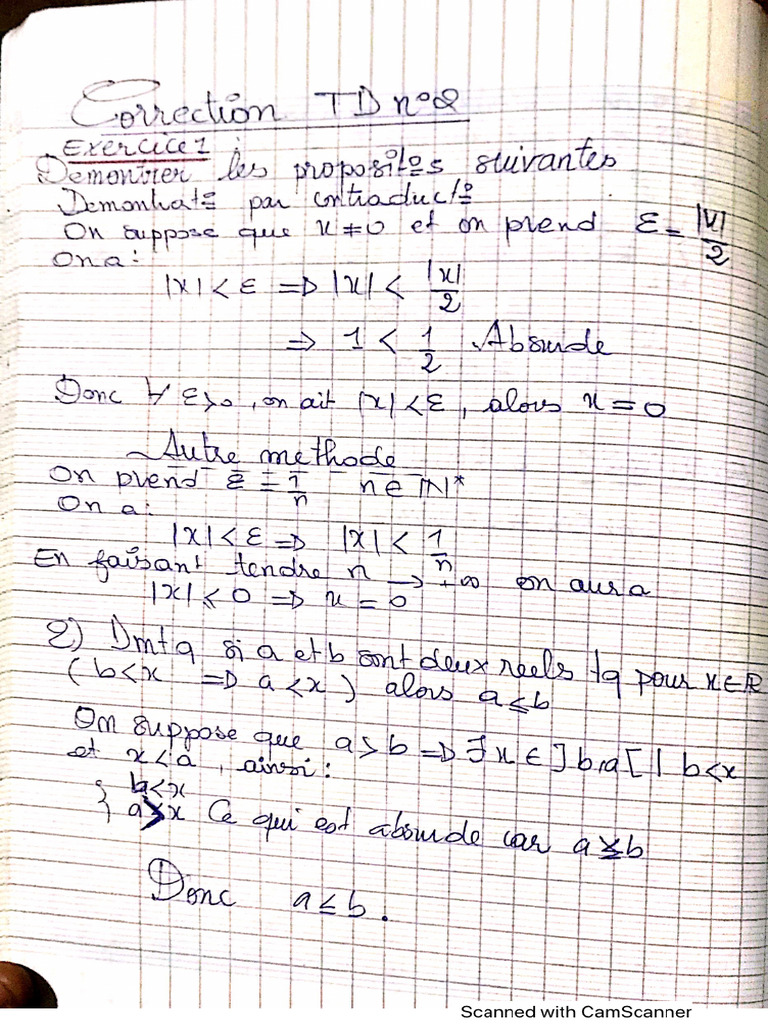 Correction TD n°2
Exercice 1 :
Demontrer les propositos suivantes
Demontrats par contraducto
On suppose que x ≠ 0 et on prend ε = |x|/2
On a :
|x| < ε => |x| < |x|/2
=> 1 < 1/2 Absurde
Donc ∀ ε>0, on ait |x| < ε, alors x = 0
Autre methode
On prend ε = 1/n n ∈ IN*
On a :
|x| < ε => |x| < 1/n
En faisant tendre n → +∞ on aura
|x| ≤ 0 => x = 0
2) Dmtq si a et b sont deux reels tq pour x∈IR
(b<x => a<x) alors a≤b
On suppose que a>b => ∃ x ∈ ]b,a[ | b<x
et x<a, ainsi :
{ b<x
{ a>x Ce qui est absurde car a≤b
Donc a≤b.
Scanned with CamScanner